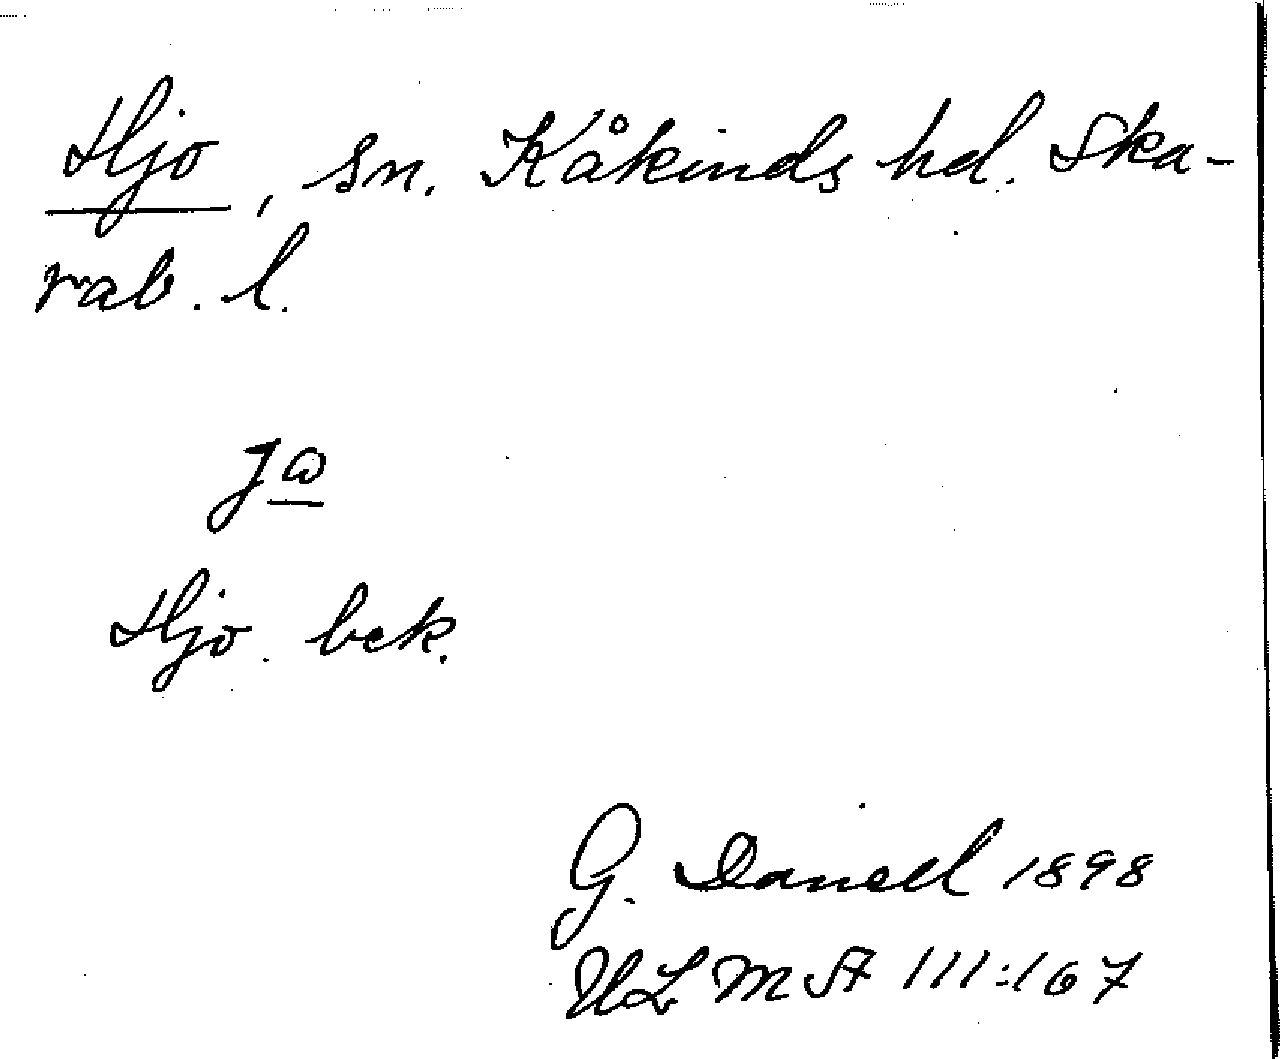 Hjo, sn. Kåkinds hd. Ska-
rab. l.
jɷ
Hjo. bek.
G. Danell 1898
ULMA 111:167